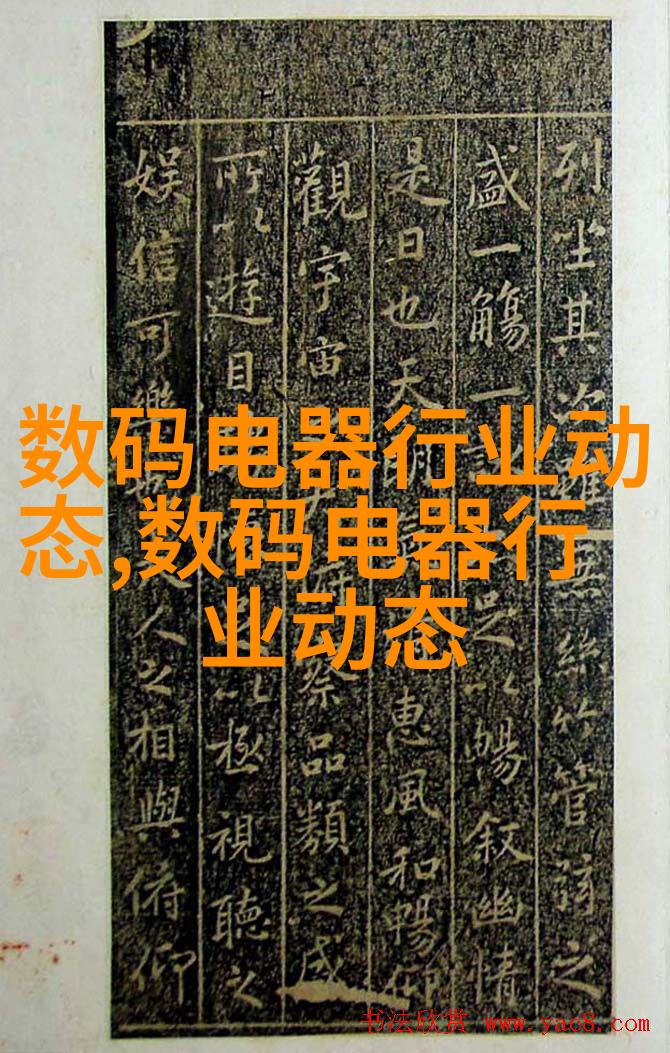 列坐其次雖無絲竹管弦之
盛一觴一足以暢叙幽情
是日也天朗惠風和暢仰
觀宇宙察品類之盛
所以遊目以極視聽之
娱信可樂人之相與俯仰
数码电器行业动
态,数码电器行
业动态
书法欣赏 www.yac8.com